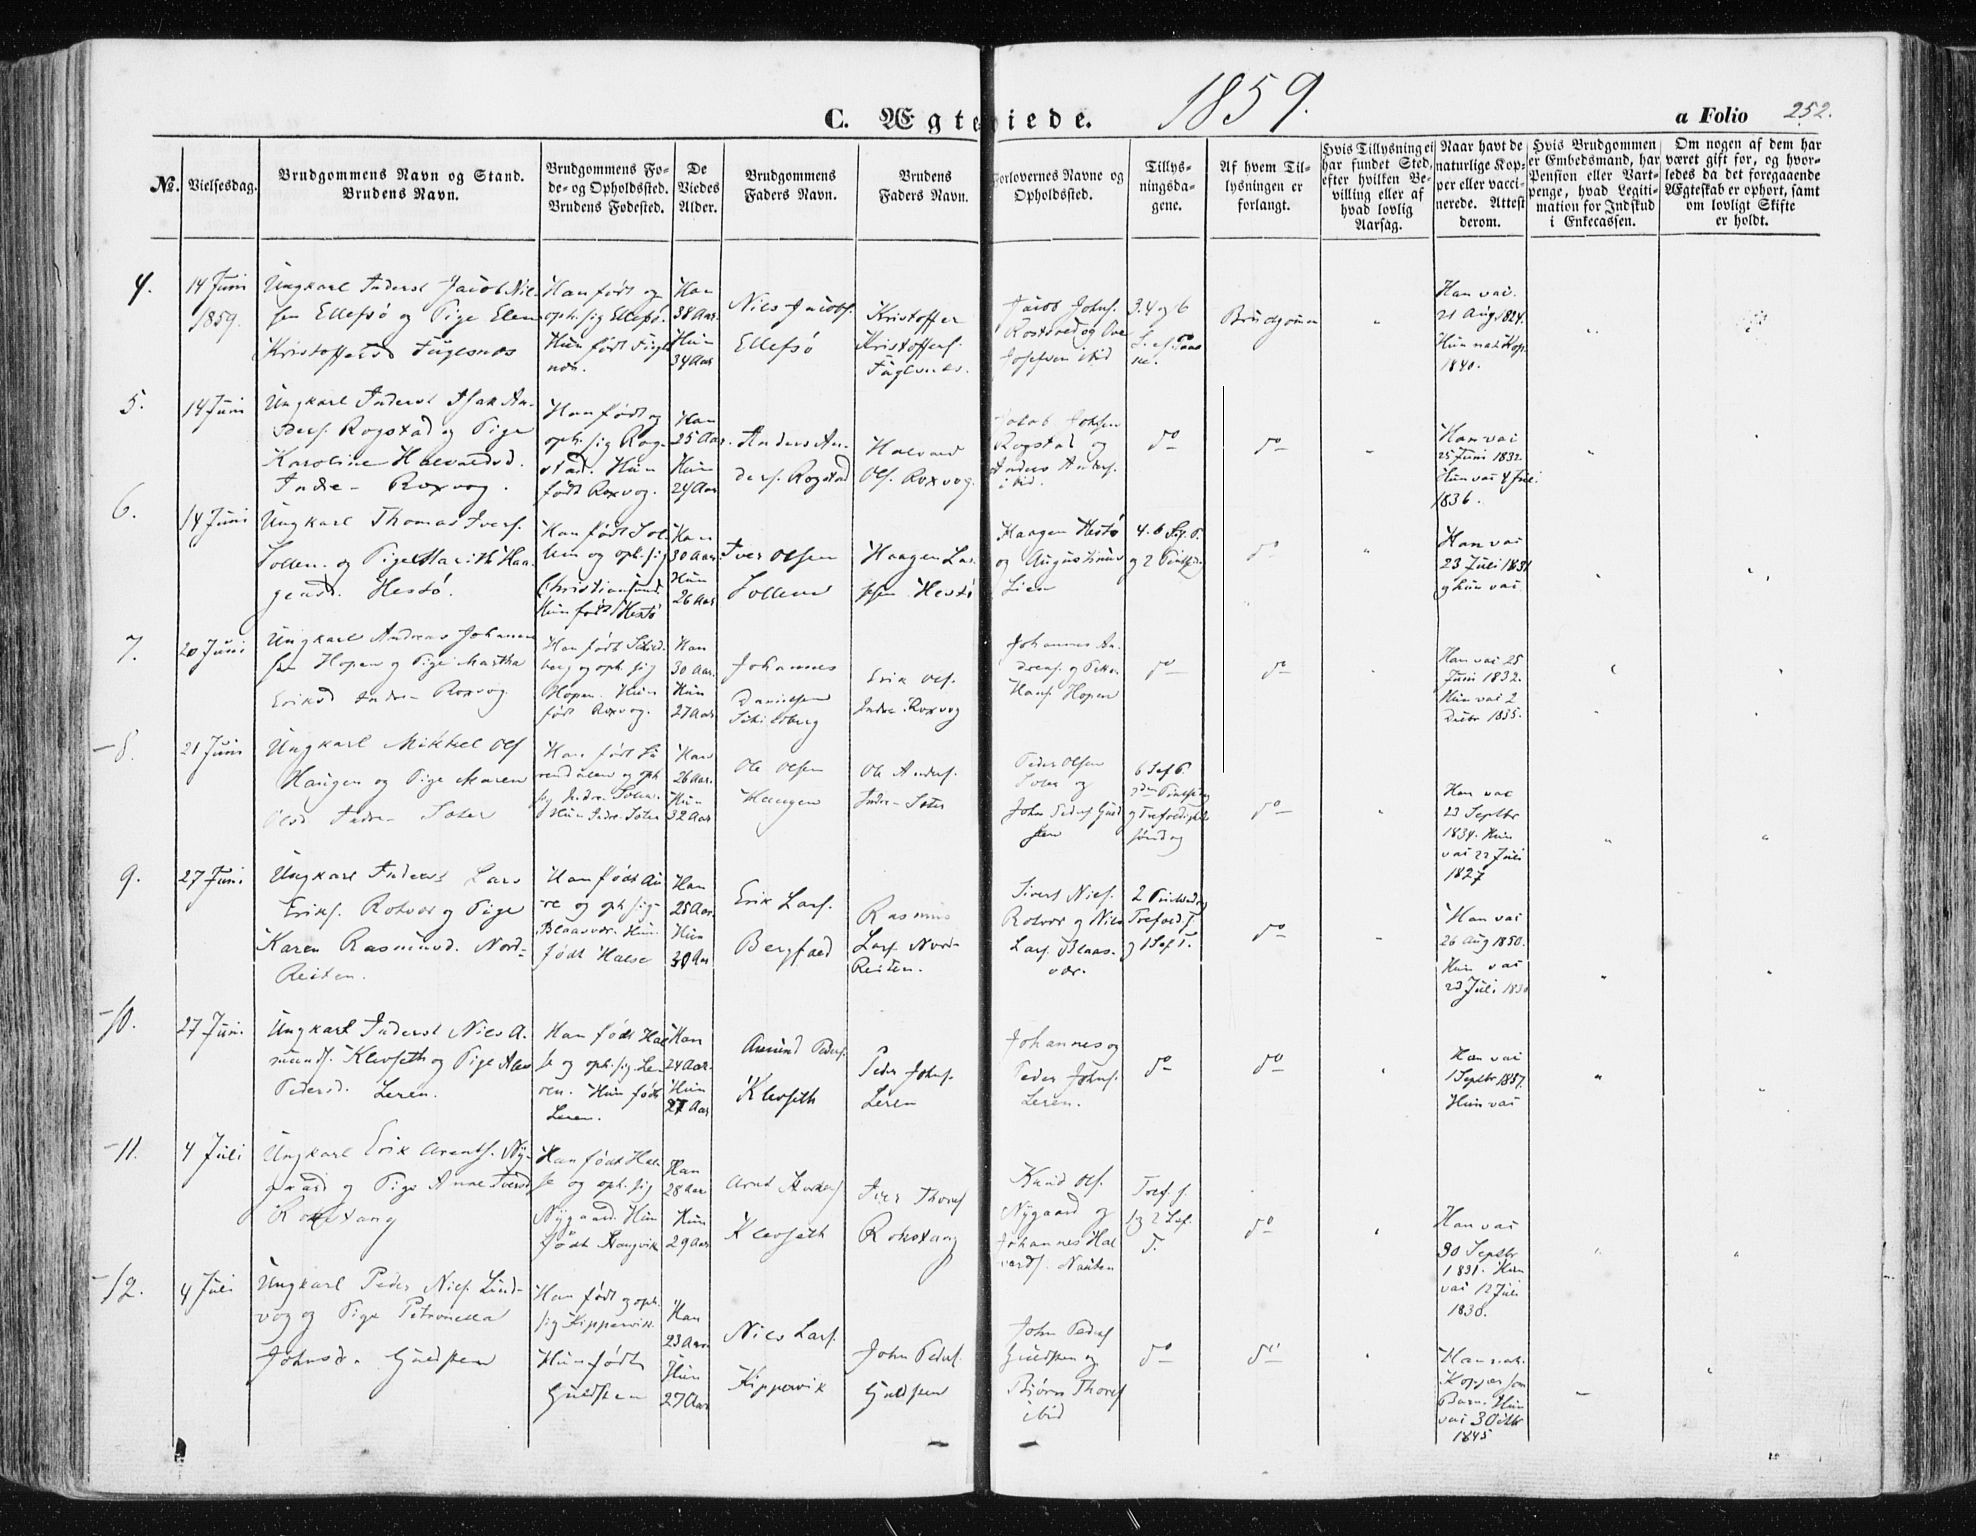 C. Ægteviede. 1859. a Folio 252.
No. Vielsesdag. Brudgommens Navn og Stand. Brudens Navn. Brudgommens Fødе- og Opholdssted. Brudens Fødested. De Viedes Alder. Brudgommens Faders Navn. Brudens Faders Navn. Forlovernes Navne og Opholdssted. Tillysningsdagene. Af hvem Tillysningen er forlangt. Hvis Tillysning ei har fundet Sted, efter hvilken Bevilling eller af hvad lovlig Aarsag. Naar havt de naturlige Kopper eller vaccinerede. Attest derom. Hvis Brudgommen er Embedsmand, har Pension eller Vartpenge, hvad Legitimation for Indskud i Enkecassen. Om nogen af dem har været gift for, og hvorledes da det foregaaende Ægteskab er ophort, samt om lovligt Skifte er holdt.
4. 14 Juni 1859.
Ungkarl Inderst Jacob Niel-
sen Ellefsö og Pige Elen
Kristoffersd Fuglesnes
Han født og
oph. sig Ellefsö.
Hun født Fugles
nes.
Han
38 Aar.
Hun
34 Aar
Nils Jacobs.
Ellefsö
Kristoffer
Kristoffers.
Fuglesnes.
Jacob Johns.
og Ove
Josefsen ibid
3. 4 og 6
S. ef. Paas
ke.
Brudgom
Han vac.
21 Aug 1824.
Hun nat. Kop.
1840.
5. 14 Juni
Ungkarl Inderst Isak An-
ders. Rogstad og Pige
Karoline Halvardsd.
Indre- Roxvog.
Han født og
oph. sig Rog-
stad. Hun
født Roxvog.
Han
25 Aar.
Hun
24 Aar
Anders An-
ders. Rogstad
Halvard
Ols. Roxvog.
Jakob Johnsen
Rogstad og
Anders Anders.
ibid.
do
do
Han vac
25 Juni 1832.
Hun vac 4 Juli
1836.
6. 14 Juni
Ungkarl Thomas Ivers.
Sollem. og Pige Marith Haa-
gensd. Hestö.
Han født Sol
lem og oph. sig
Christiansund
Hun født Hestö
Han
30 Aar.
Hun
26 Aar
Iver Olsen
Sollem
Haagen Lar
sen Hestö
Haagen Hestö
og Augustinus
Lien
do
Han vac
23 Juli 1831
og hun vac.
7. 20 Juni
Ungkarl Andreas Johannes
sen Hopen og Pige Martha
Eriksd Indre- Roxvog
Han født Schild
berg og oph. sig
Hopen. Hun
født Roxvog.
Han
30 Aar.
Hun
27 Aar
Johannes
Danielsen
Schildberg
Erik Ols.
Indre- Roxvog
Johannes An
dreas. og Peter
Hans. Hopen
do
do
Han vac 25
Juni 1832.
Hun vac 2
Decbr 1835.
8. 21 Juni
Ungkarl Mikkel Ols
Haugen og Pige Maren
Olsd Indre- Soter
Han født Su
rendalen og oph
sig Indre- Soter.
Hun Indre- Soter
Han
26 Aar.
Hun
32 Aar
Ole Olsen
Haugen
Ole Anders.
Indre- Soter
Peder Olsen
Soter og
John Peders Guld
sten
6 S. ef P.
og Trefoldigheds
søndag
do
Han vac
23 Septbr
1834. Hun
vac 22 Juli
1827
9. 27 Juni
Ungkarl Inderst Lars
Eriks. Rotvor og Pige
Karen Rasmusd. Nord-
Reiten.
Han født Au
re og oph. sig
Blaasvær. Hun
født Halse
Han
25 Aar.
Hun
30 Aar
Erik Lars.
Rasmus
Lars. Nord-
Reiten.
Sivert Niels.
Rotvor og Nils
Lars. Blaas-
vær.
do
Han vac
26 Aug 1850.
Hun vac
23 Juli 1830
10. 27 Juni
Ungkarl Inderst Nils A-
munds. Klevseth og Pige
Pedersd. Leren.
Han født Hal
se og oph. sig Le-
ren. Hun født
Leren.
Han
24 Aar.
Hun
27 Aar
Amund Peders.
Klevseth
Peder Johns.
Leren
Johannes og
Peder Johns.
Leren.
do
do
Han vac
1 Septbr 1857.
Hun vac
11. 4 Juli
Ungkarl Erik Arents. Ny-
gaard og Pige Anne Iversd
Rokstang
Han født Hal-
se og oph. sig
Nygaard. Hun
født Stangvik
Han
28 Aar
Hun
29 Aar
Klevseth
Iver Thores
Rokstang
Knud Ols.
Nygaard og
Johannes Hal
vards.
do
Han vac
30 Septbr
1831. Hun
vac 12 Juli
1838.
12. 4 Juli
Ungkarl Peder Niels. Lind-
vog og Pige Petronella
Johnsd. Guldsten
Han født og oph.
sig Kippervik.
Hun født
Guldsten
Han
23 Aar
Hun
27 Aar
Nils Lars.
Kippervik
John Peders.
Guldsten
John Peders
Guldsten og
Bjørn Thores
ibid
do
do
Han nat.
Kopper som
Barn. Hun
vac 3 Octbr
1845